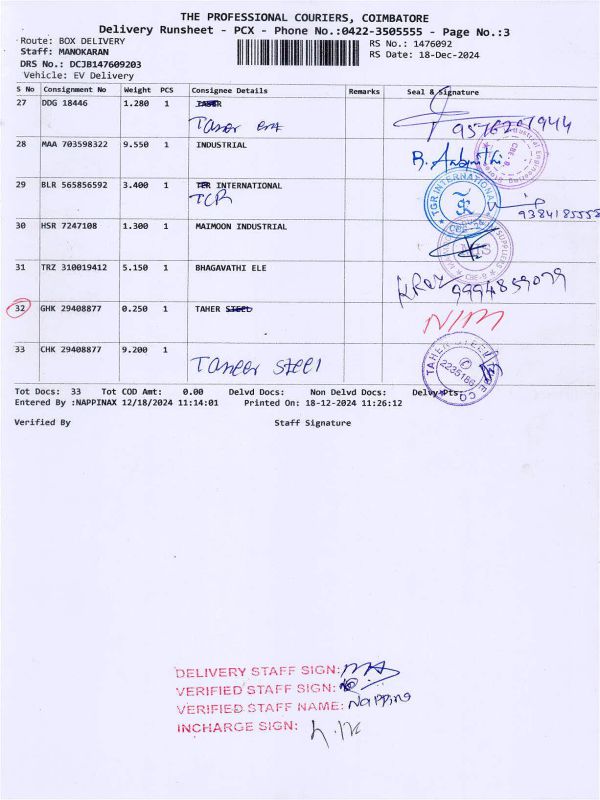 THE PROFESSIONAL COURIERS, COIMBATORE
Delivery Runsheet - PCX - Phone No.:0422-3505555 - Page No.:3
Route: BOX DELIVERY
RS No.: 1476092
Staff: MANOKARAN
RS Date: 18-Dec-2024
DRS No.: DCJB147609203
Vehicle: EV Delivery
S No Consignment No Weight PCS Consignee Details Remarks Seal & Signature
27 DDG 18446 1.280 1
Taher 9576201944
28 MAA 703598322 9.550 1 INDUSTRIAL
CBE-
29 BLR 565856592 3.400 1 TGR INTERNATIONAL
TGR INTERNATIONAL
9384185558
30 HSR 7247108 1.300 1 MAIMOON INDUSTRIAL
SUPPLIERS
CBE-9
31 TRZ 310019412 5.150 1 BHAGAVATHI ELE
9994859079
32 GHK 29408877 0.250 1 TAHER STEEL
N/M
33 CHK 29408877 9.200 1
Taheer steel
TAHER STEEL
2235186
Tot Docs: 33 Tot COD Amt: 0.00 Delvd Docs: Non Delvd Docs: Delvy Pts:
Entered By :NAPPINAX 12/18/2024 11:14:01 Printed On: 18-12-2024 11:26:12
Verified By Staff Signature
DELIVERY STAFF SIGN:
VERIFIED STAFF SIGN:
VERIFIED STAFF NAME: Nappina
INCHARGE SIGN: